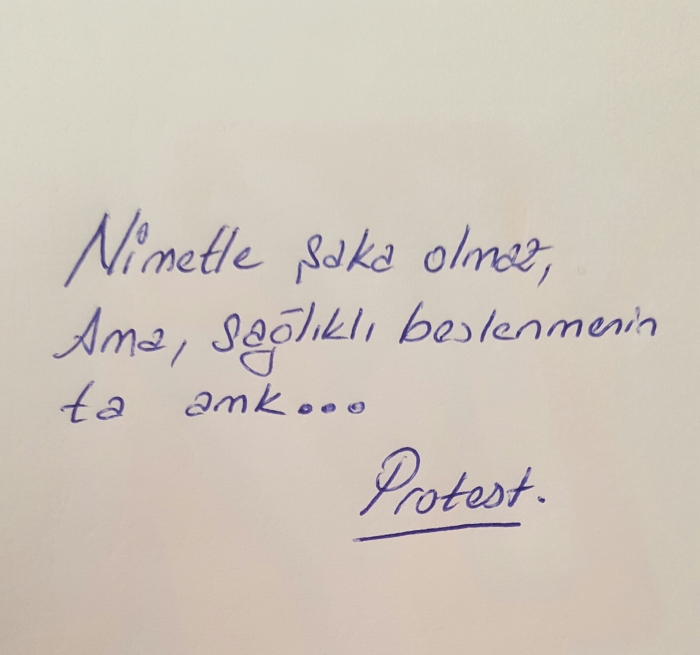 Nimetle şaka olmaz,
Ama, sağlıklı beslenmenin
ta amk...
Protest.